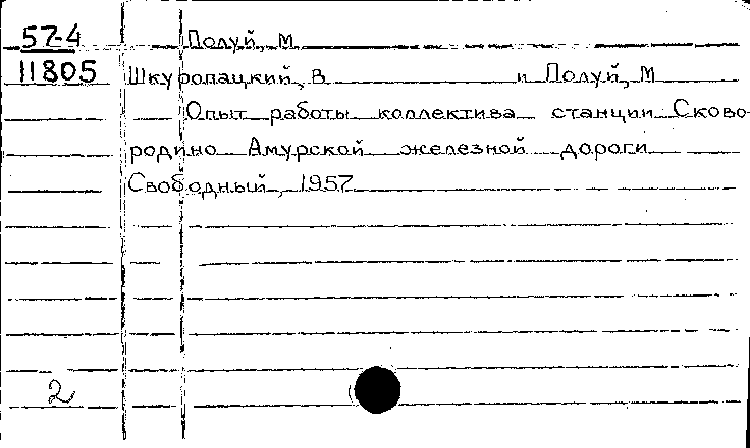 57-4 Полуй, М
11805 Шкуропацкий, В и Полуй, М
Опыт работы коллектива станции Сково-
родино Амурской железной дороги
Свободный, 1957
2